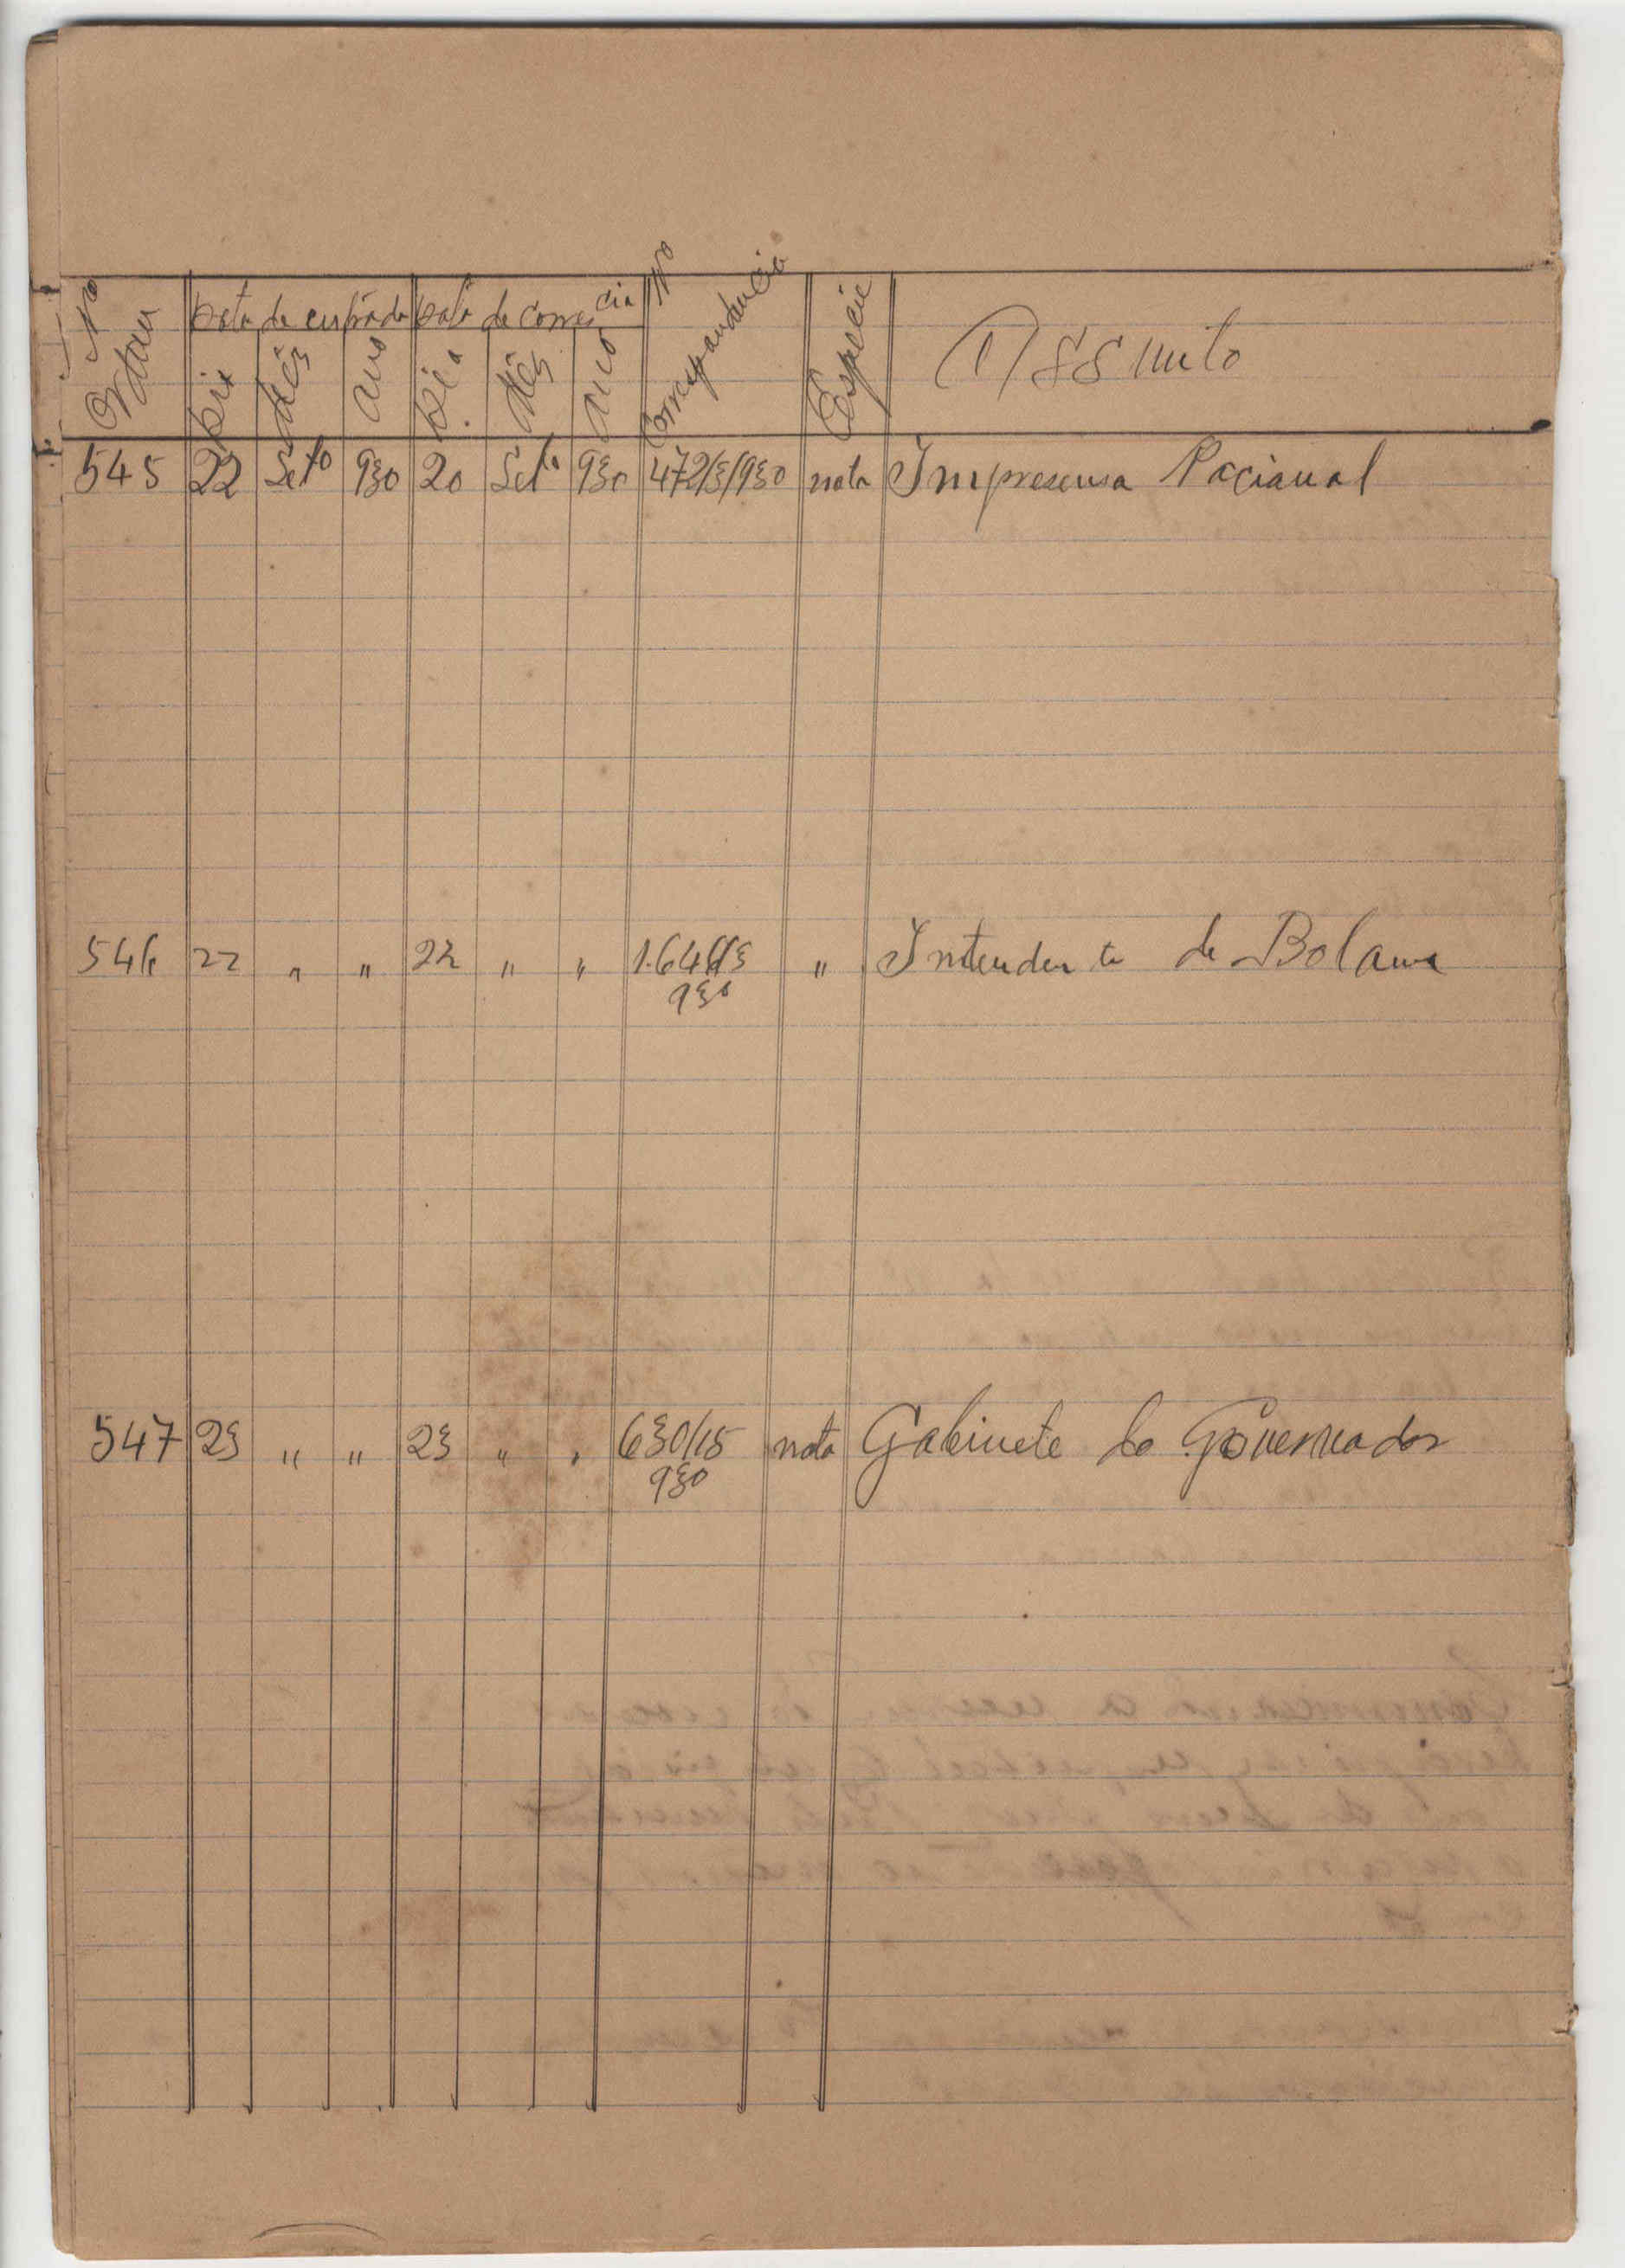 Nº Ordem Data de entrada Data de corres cia Nº Correspondencia Especie Assunto
Dia Mês Ano Dia Mês Ano
545 22 Setº 930 20 Setº 930 472/3/930 nota Impresensa Nacional
546 22 " " 22 " " "  Intendente de Bolama
930
547 23 " " 23 " " 630/15 nota Gabinete do Governador
930